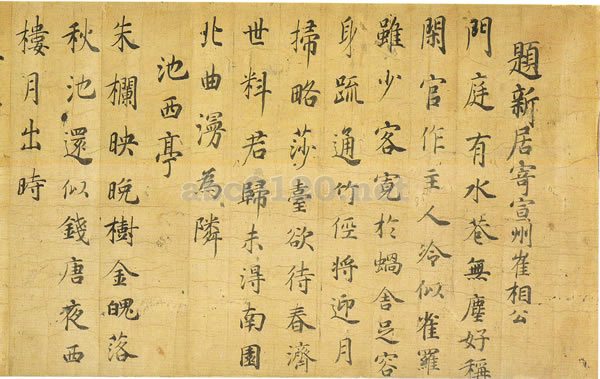 題新居寄宣州崔相公
門庭有水巷無塵好稱
閑官作主人冷似雀羅
雖少客寬於蝸舍足容
身疏通竹徑將迎月
掃略莎臺欲待春濟
世料君歸未得南園
北曲漫為隣
池西亭
朱欄映晚樹金魄落
秋池還似錢唐夜西
樓月出時